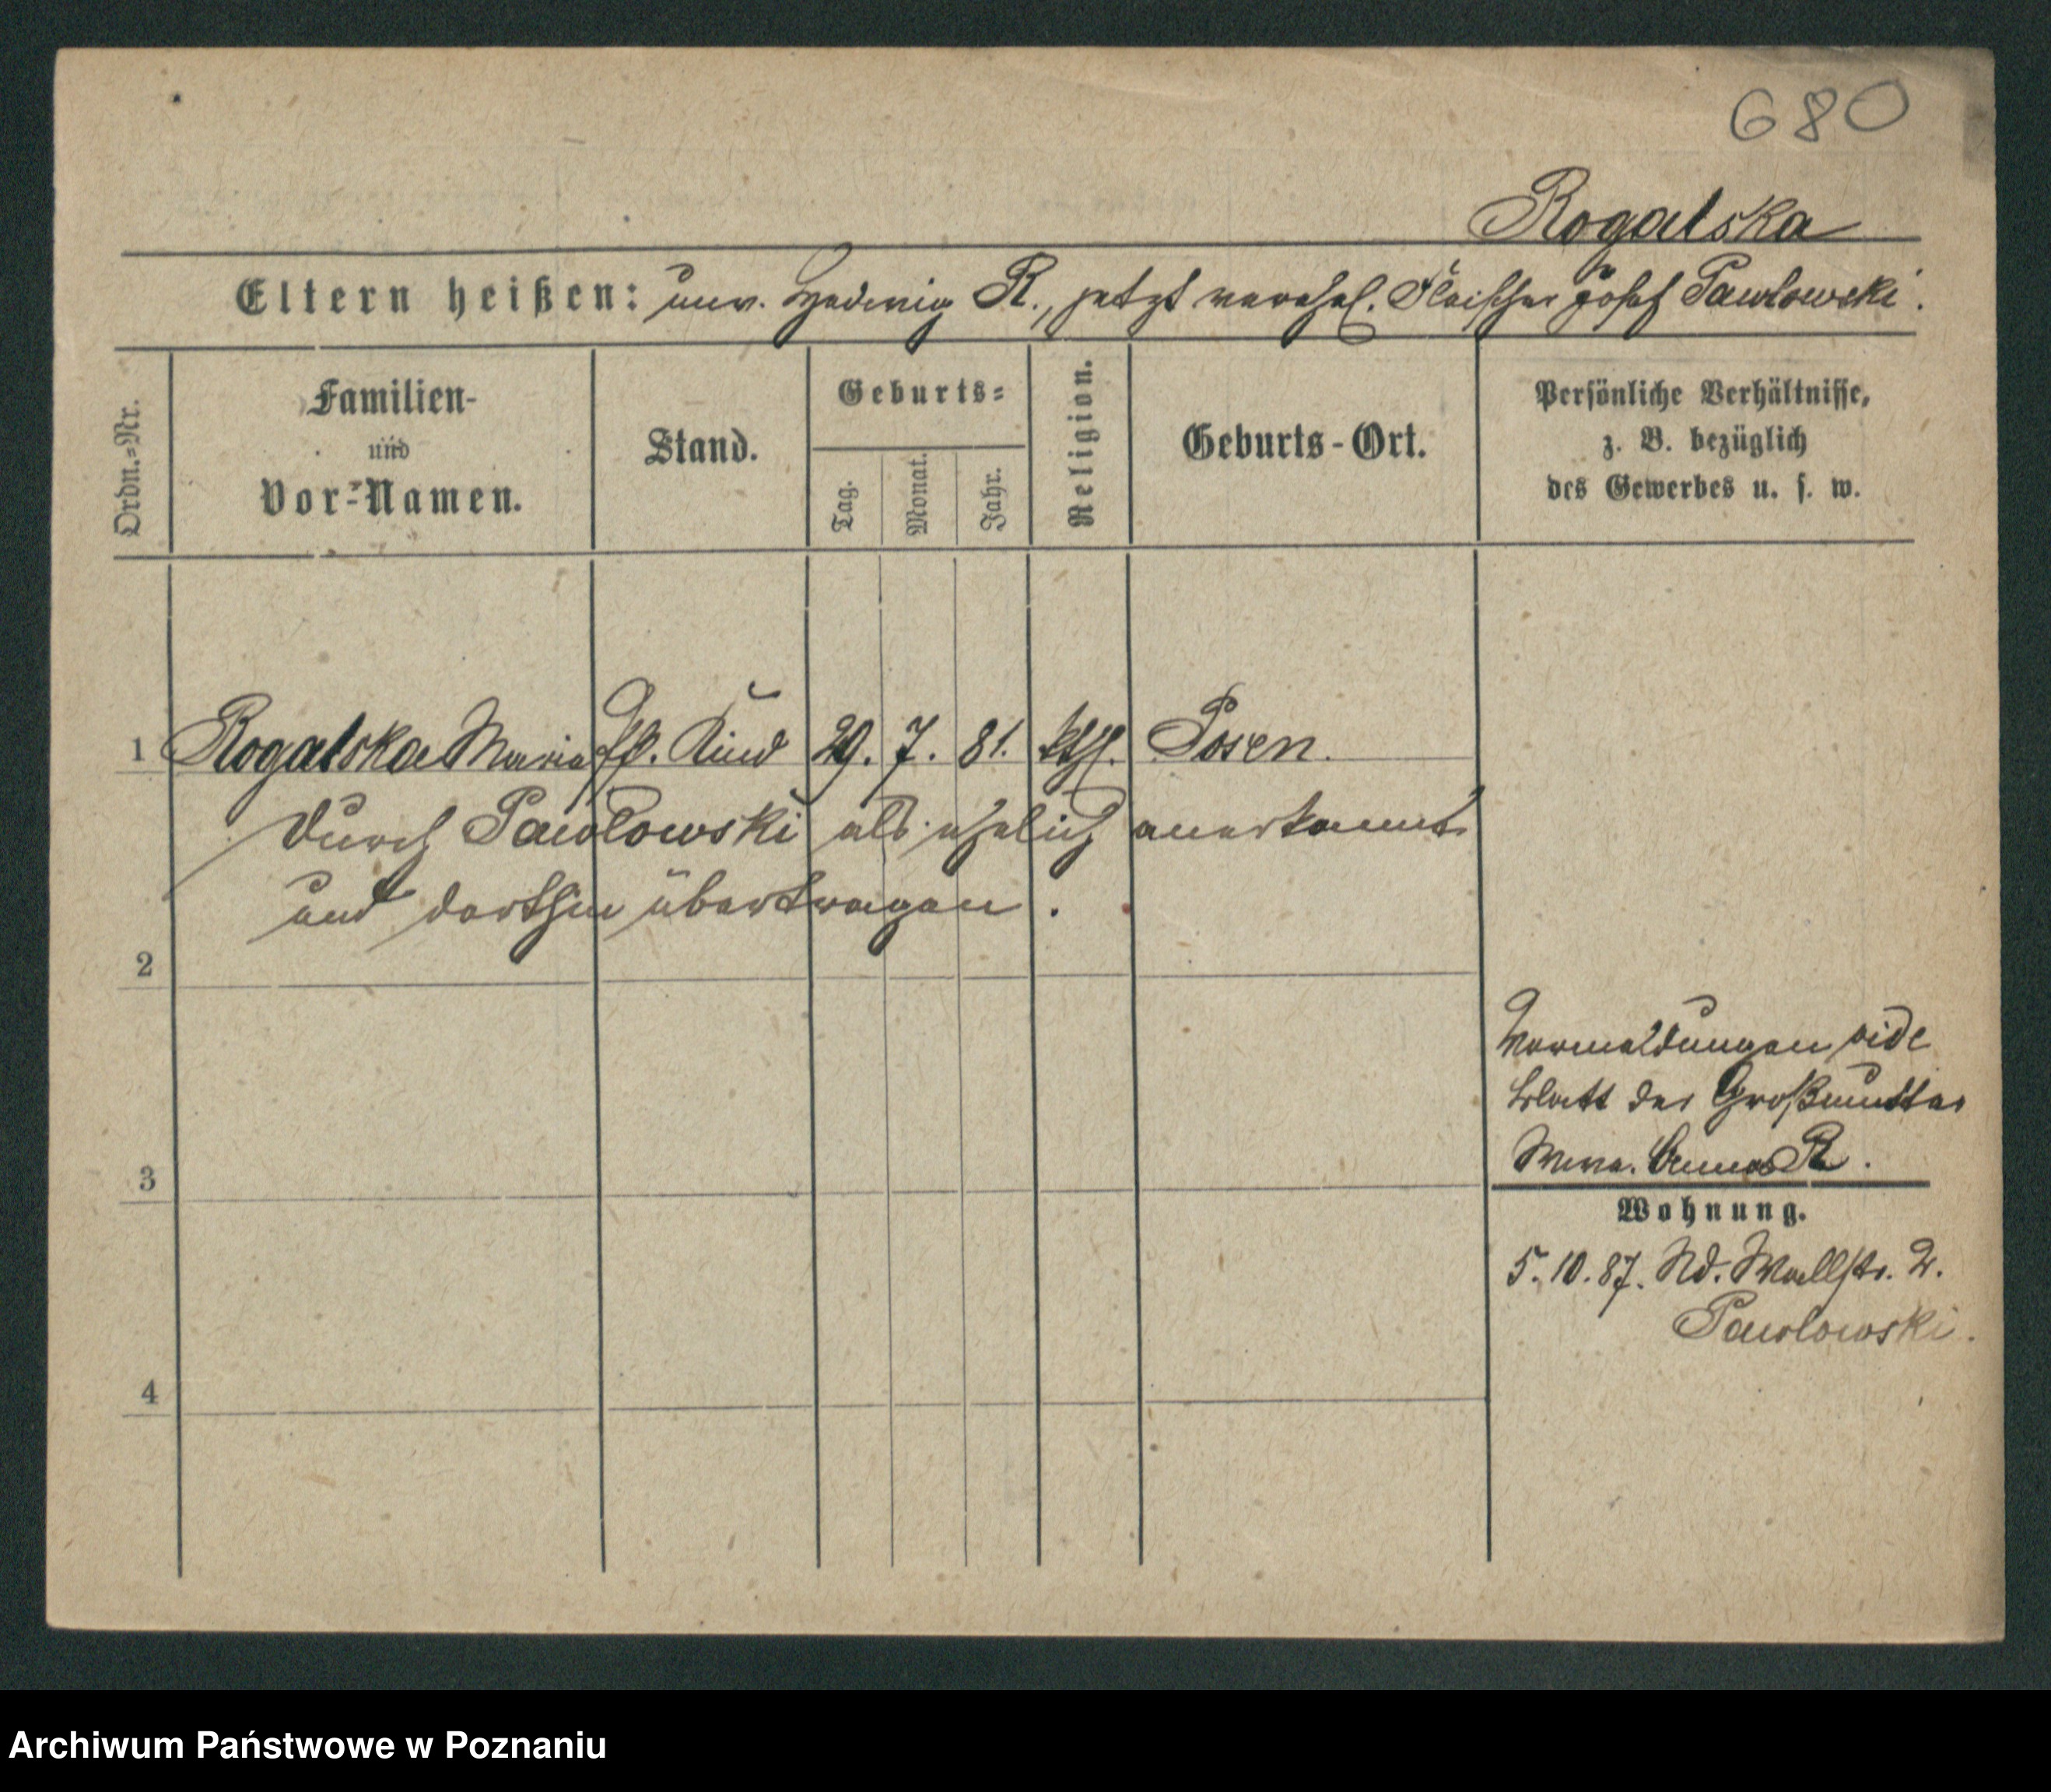 680
Rogalska
Eltern heißen: unv. Hedwig R., jetzt verehel. Fleischer Josef Pawlowski.
Ordn.-Nr.
Familien-
und
Vor-Namen.
Stand.
Geburts-
Tag.
Monat.
Jahr.
Religion.
Geburts-Ort.
Persönliche Verhältnisse,
z. B. bezüglich
des Gewerbes u. s. w.
1 Rogalska Maria Kind 29. 7. 81. kth. Posen.
Durch Pawlowski als ehelich anerkannt
und dorthin übertragen.
2
3
4
Vormeldungen vide
Blatt der Großmutter
Wwe. Anna R.
Wohnung.
5.10.87. Nd. Wallstr. 2.
Pawlowski.
Archiwum Państwowe w Poznaniu